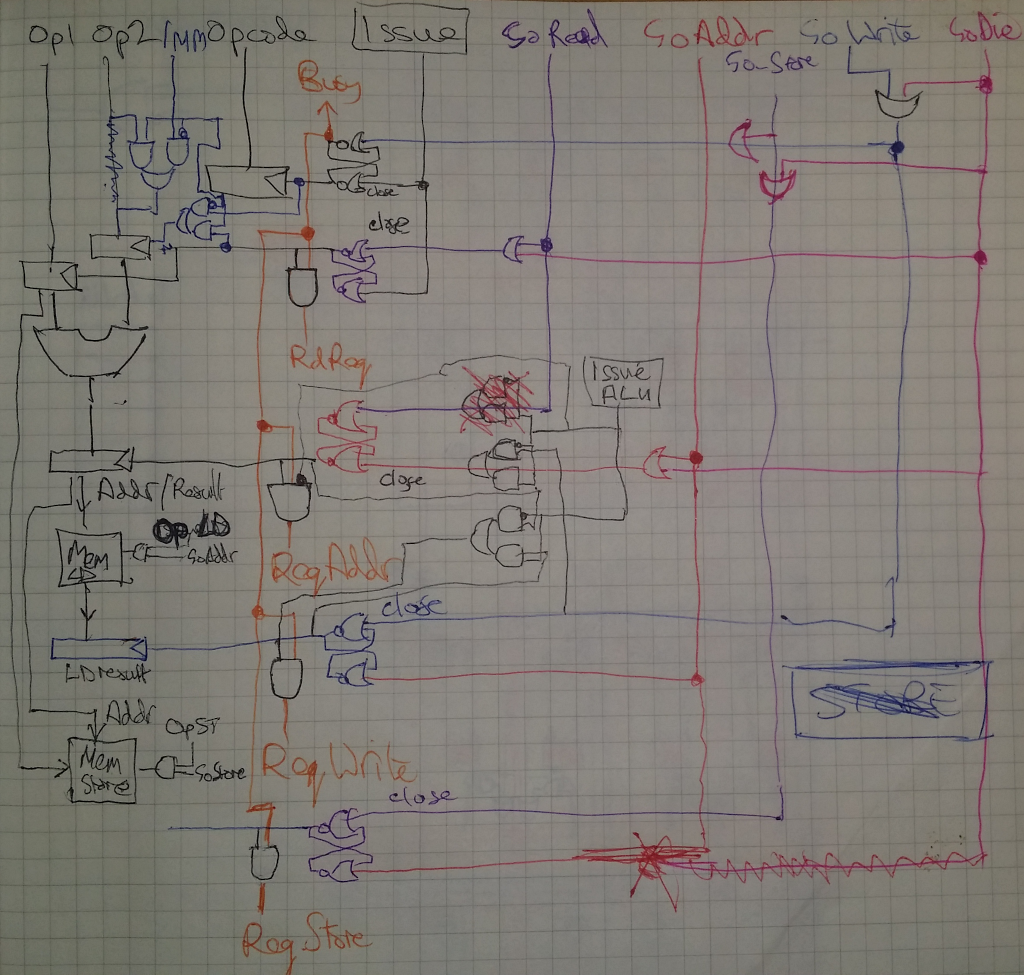 Op1 Op2/Imm Opcode Issue GoRead GoAddr GoWrite GoDie
Go_Store
Busy
close
close
RdReq
Issue
ALU
close
Addr/Result
Op LD
Mem
GoAddr
Req Addr
close
LD result
STORE
Addr
OpST
Mem
Store
GoStore
Req Write
close
Req Store